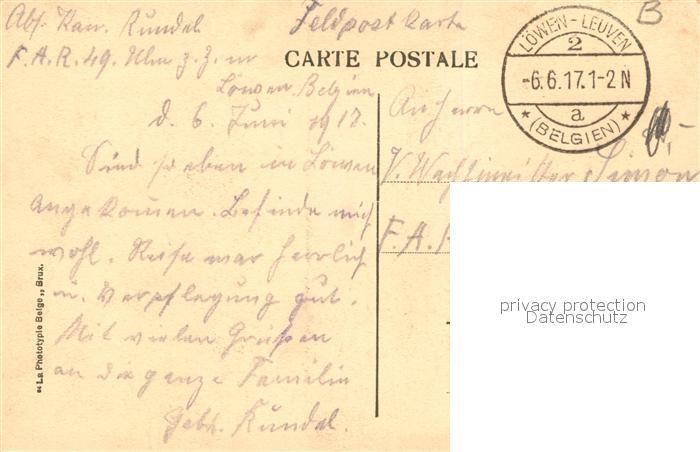 Abs. Kan. Kundel
Feldpostkarte
B
F. A. R. 49. Ulm z. Z. in
CARTE POSTALE
LÖWEN - LEUVEN
2
-6.6.17.1-2 N
a
* (BELGIEN) *
Löwen. Belgien
d. 6. Juni 1917.
An Herrn
Sind soeben in Löwen
V. Wachtmeister Simon
angekommen. Befinde mich
F. A.
wohl. Reise war herrlich
u. Verpflegung gut.
Mit vielen Grüßen
an die ganze Familie
Kundel.
"La Phototypie Belge„ Brux.
privacy protection
Datenschutz